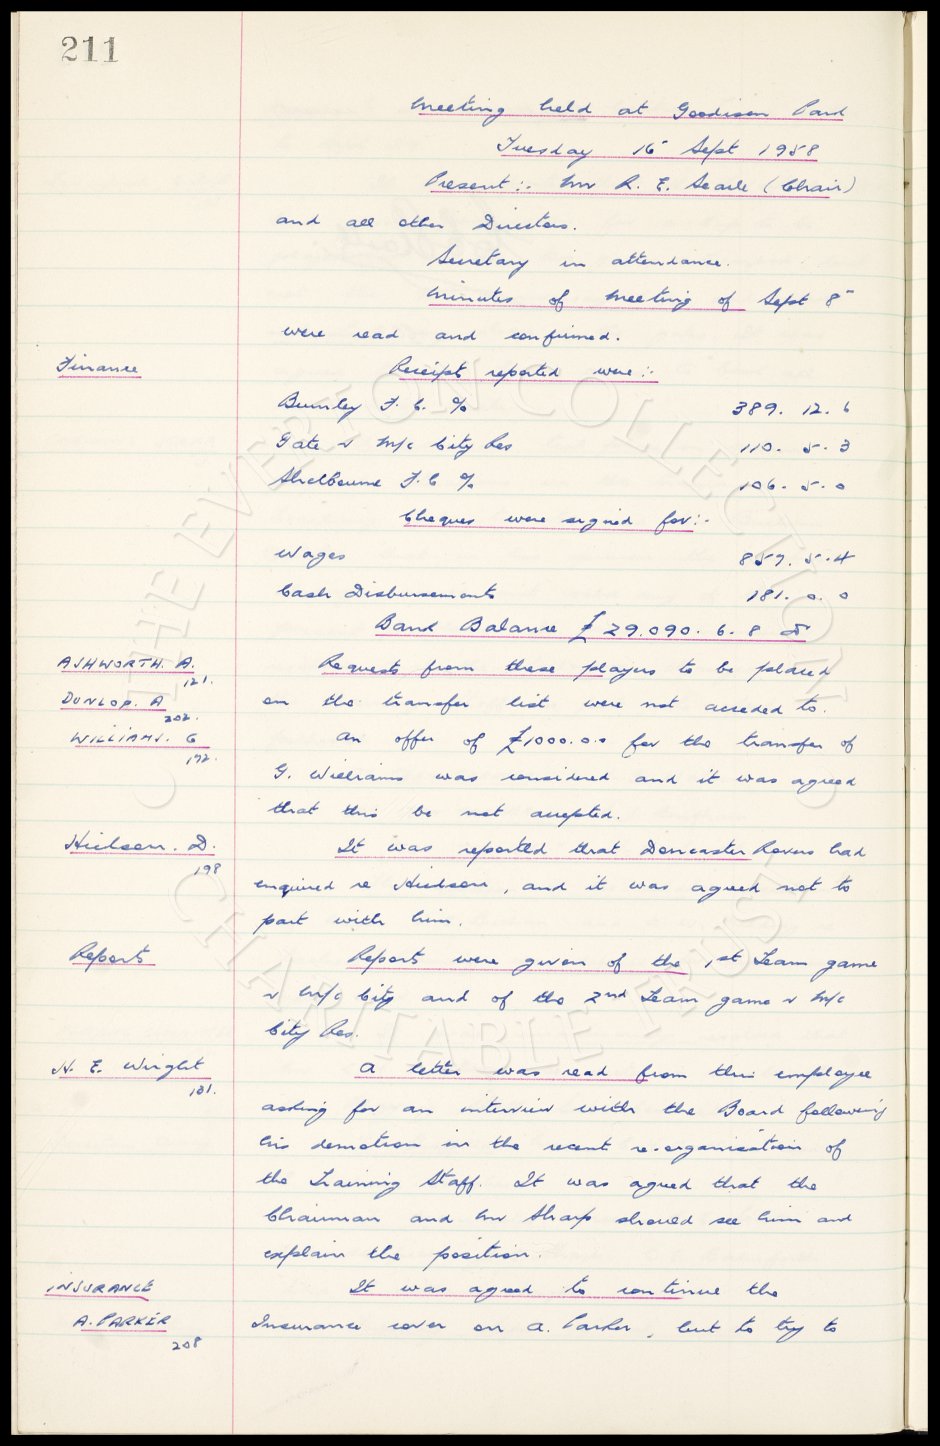 211
Meeting held at Goodison Park
Tuesday 16th Sept 1958
Present:- Mr R. E. Searle (Chair)
and all other Directors.
Secretary in attendance.
Minutes of Meeting of Sept 8th
were read and confirmed.
Finance
Receipts reported were:-
Burnley F. C. % 389. 12. 6
Gate v M/c City Res 110. 5. 3
Shelbourne F. C % 106. 5. 0
Cheques were signed for:-
Wages 857. 5. 4
Cash Disbursements 181. 0. 0
Bank Balance £29.090. 6. 8
ASHWORTH. A. 121.
DUNLOP. A 202.
WILLIAMS. G 172.
Requests from these players to be placed
on the transfer list were not acceded to.
An offer of £1000.0.0 for the transfer of
G. Williams was considered and it was agreed
that this be not accepted.
Hickson. D. 198
It was reported that Doncaster Rovers had
enquired re Hickson, and it was agreed not to
part with him.
Reports
Reports were given of the 1st Team game
v M/c City and of the 2nd Team game v M/c
City Res.
H. E. Wright 181.
A letter was read from this employee
asking for an interview with the Board following
his demotion in the recent re-organisation of
the Training Staff. It was agreed that the
Chairman and Mr Sharp should see him and
explain the position.
INSURANCE
A. PARKER 208
It was agreed to continue the
Insurance cover on A. Parker, but to try to
THE EVERTON COLLECTION
CHARITABLE TRUST